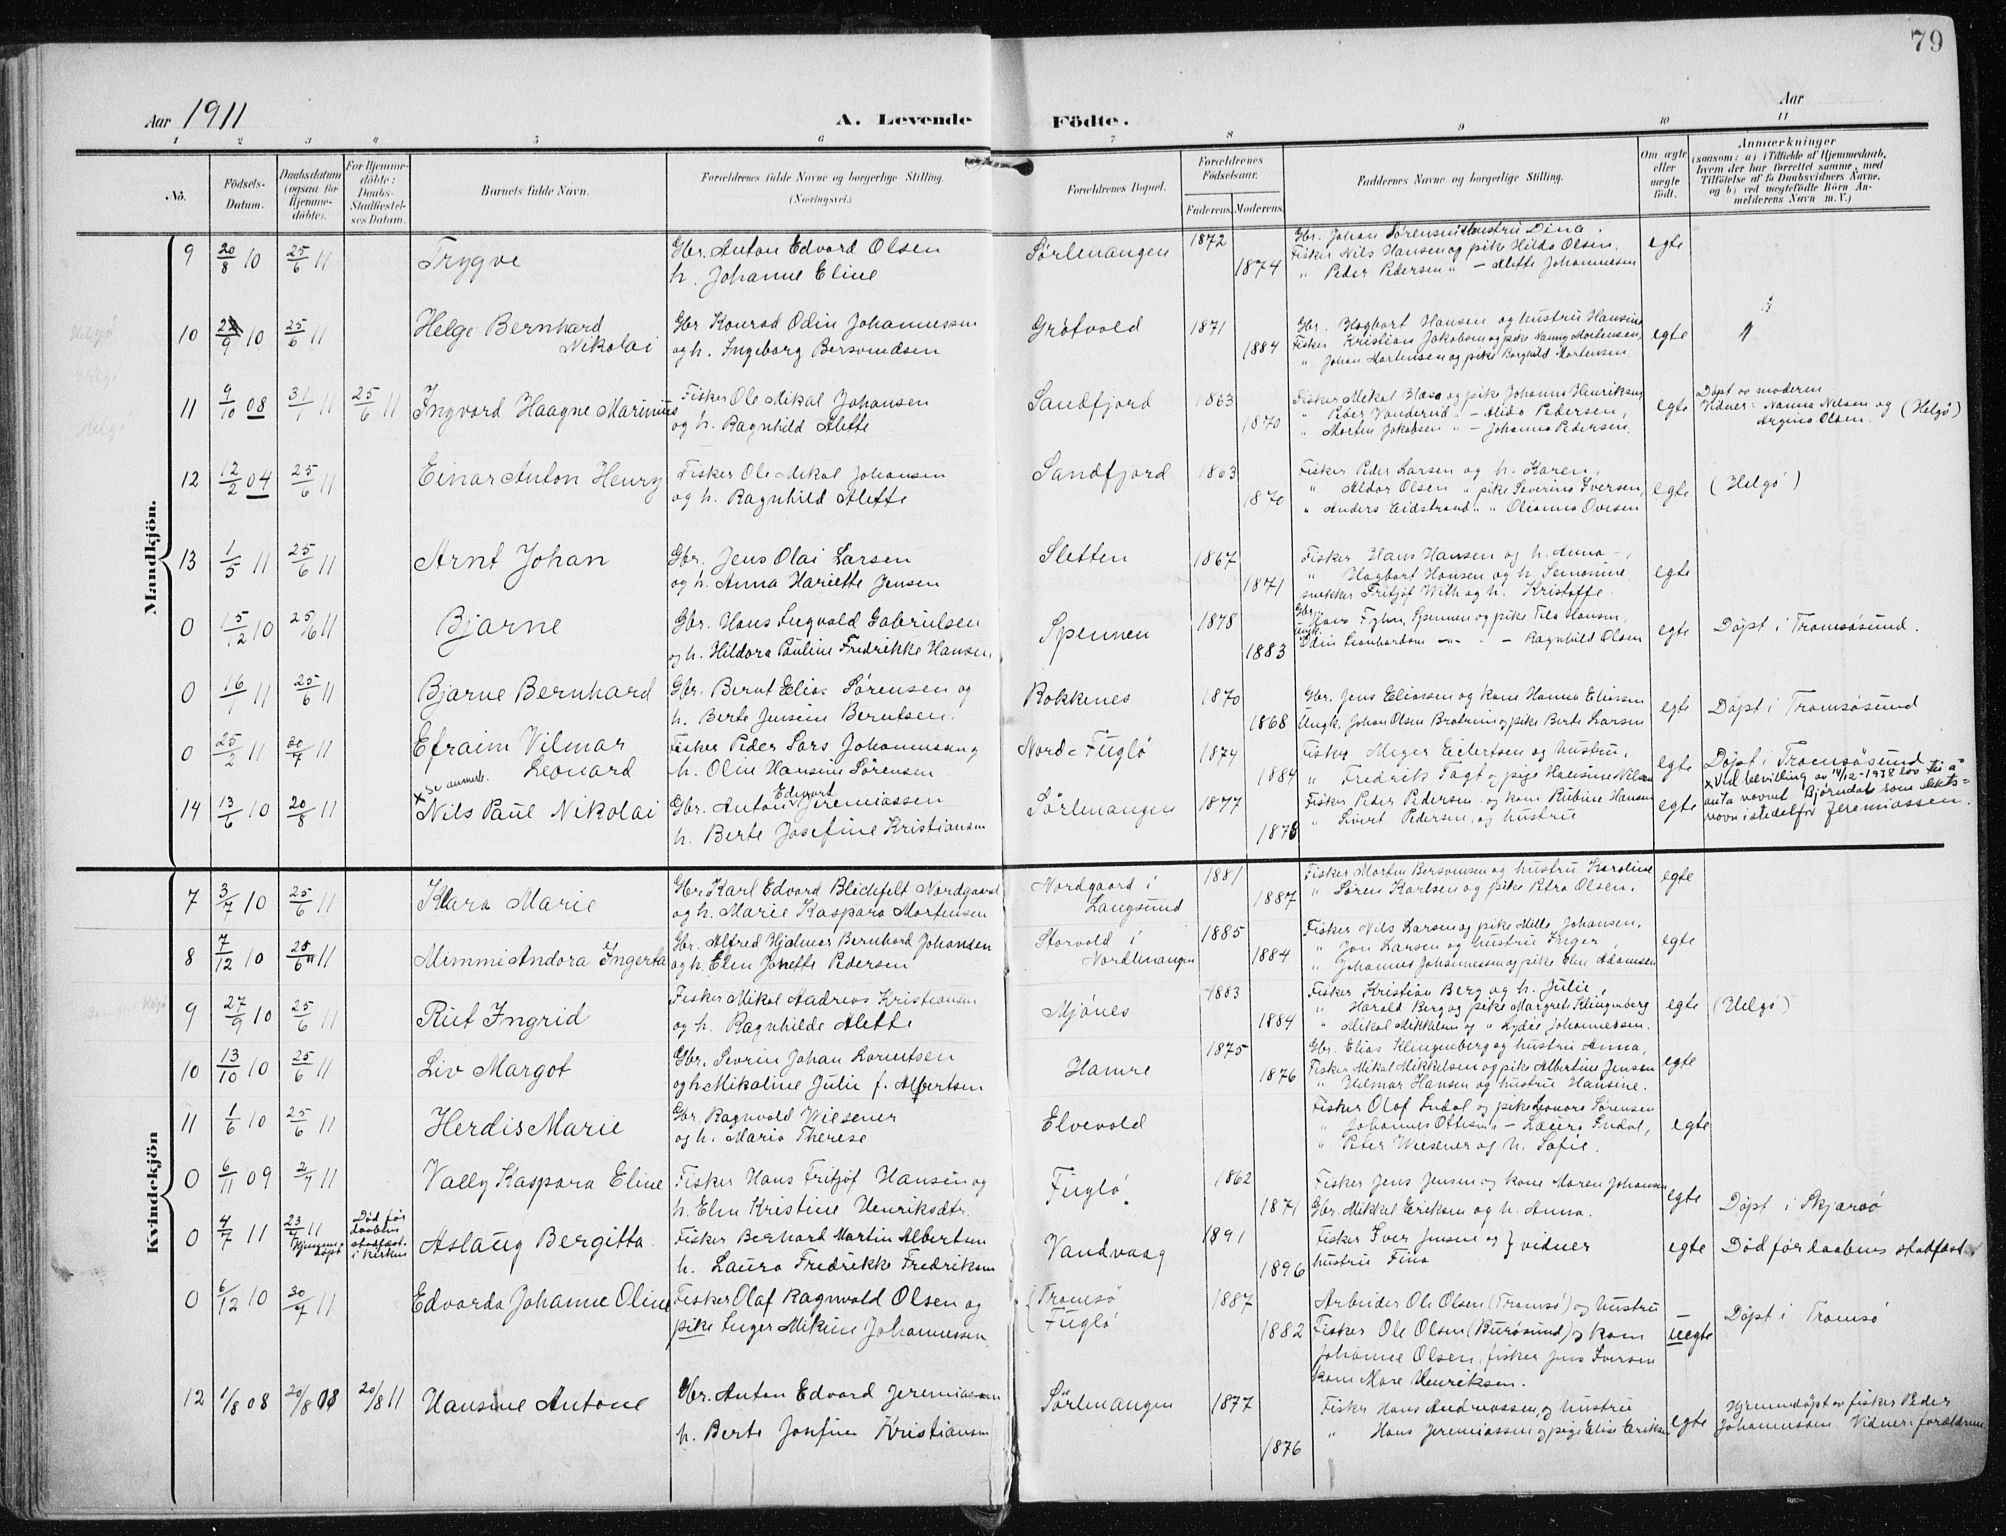 79
Aar 1911
A. Levende Födte.
Aar
1 2 3 4 5 6 7 8 9 10 11
No.
Födsels-Datum.
Daabsdatum (ogsaa for Hjemmedöbte).
For Hjemmedöbte: Daabs-Stadfæstelses Datum.
Barnets fulde Navn.
Forældrenes fulde Navne og borgerlige Stilling. (Næringsvei.)
Forældrenes Bopæl.
Forældrenes Födselsaar.
Faderens. Moderens.
Faddernes Navne og borgerlige Stilling.
Om ægte eller uægte födt.
Anmærkninger (saasom: a) i Tilfælde af Hjemmedaab, hvem der har forrettet samme, med Tilföielse af to Daabsvidners Navne, og b) ved uegtefödte Börn Anmelderens Navn m. V.)
Mandkjön.
9 20/8 10 25/6 11 Trygve Gbr. Anton Edvard Olsen Sörlenangen 1872 Gbr. Johan Sörensen, Hustru Dina.
h. Johanne Eline 1874 Fisker Nils Hansen og pike Hilda Olsen. egte
" Peder Pedersen " - Alette Johannessen
10 /9 10 25/6 11 Helge Bernhard Gbr Konrad Odin Johannessen Grötvold 1871 Gbr. Hagbart Hansen og hustru Hansine
Nikolai og h. Ingeborg Bersvendsen 1884 Fisker Kristian Jakobsen og pike Nanny Mortensen, egte "
" Johan Mortensen og pike Borghild Mortensen
11 9/10 08 31/1 11 25/6 11 Ingvard Haagne Marinius Fisker Ole Mikal Johansen Sandfjord 1863 Fisker Mikal og pike Johanna Henriksen Döpt av moderen
og h. Ragnhild Alette 1870 " Peder " - Alida Pedersen, egte Vidner: Nanna Nilsen og (Helgö)
" Morten Jakobsen " - Johanna Pedersen. Olsen.
12 12/2 04 25/6 11 Einar Anton Henry Fisker Ole Mikal Johansen Sandfjord 1863 Fisker Peder Larsen og h. Karen,
og h. Ragnhild Alette 1870 " Aldor Olsen " pike Severine Iversen, egte (Helgö)
" Anders Eidstrand " " Olianna Ovesen
13 1/5 11 25/6 11 Arnt Johan Gbr. Jens Olai Larsen Sletten 1867 Fisker Hans Hansen og h. Anna -,
og h. Anna Hariette Jensen 1871 " Hagbart Hansen og h. egte
snekker Fritjof With og h. Kristoffe.
0 15/12 10 25/6 11 Bjarne Gbr. Hans Ingvald Gabrielsen Spennen 1878 Gbr. Hans Spennen og pike Hansen,
og h. Hildora Pauline Fredrikke Hansen 1883 Ungk. Odin Leonhardsen -"- " - Ragnhild Olsen egte Döpt i Tromsösund.
0 16/1 11 25/6 11 Bjarne Bernhard Gbr. Bernt Elias Sörensen og Rokkenes 1870 Gbr. Jens Eliassen og kone Hanna Eliassen
h. Berte Jensine Berntsen. 1868 Ungk. Johan Olsen og pike Berte Larsen egte Döpt i Tromsösund
0 25/2 11 30/7 11 Efraim Vilmar Fisker Peder Lars Johannessen og Nord-Fuglö 1874 Fisker Meyer Eilertsen og hustru,
Leonard h. Oline Hansine Sörensen 1884 " Fredrik Fagt og pige Hansine Nilsen egte Döpt i Tromsösund
x se anmk.
14 13/6 10 20/8 11 Nils Paul Nikolai Gbr. Anton Edvart Jeremiassen Sörlenangen 1877 Fisker Peter Pedersen og kone Rubine Hansen egte x Ved bevilling av 14/12-1938 lov til å
h. Berte Josefine Kristiansen 1876 " Sivert Pedersen og hustru anta navnet Björndal som slekts-
navn istedetfor Jeremiassen.
Kvindekjön
7 3/7 10 25/6 11 Klara Marie Gbr Karl Edvard Blichfelt Nordgaard Nordgaard i 1881 Fisker Morten Bersvensen og hustru Karoline
og h. Marie Kaspara Mortensen Langsund 1887 " Sören Karlsen og pike Petra Olsen. egte
8 7/12 10 25/6 11 Mimmi Andora Ingerta Gbr. Alfred Hjalmar Bernhard Johansen Storvold i 1885 Fisker Nils Larsen og pike Mille Johansen,
og h. Elen Jonette Pedersen Nordlenangen 1884 " Jon Larsen og hustru Inger, egte
" Johannes Johannessen og pike Elen Adamsen
9 27/9 10 25/6 11 Rut Ingrid Fisker Mikal Andreas Kristiansen Mjönes 1883 Fisker Kristian Berg og h. Julie,
og h. Ragnhilde Alette 1884 " Harald Berg og pike Margret Klingenberg egte (Helgö)
" Mikal Mikkelsen og " Lydie Johannessen.
10 13/10 10 25/6 11 Liv Margot Gbr. Sevrin Johan Lorentsen Hamre 1875 Gbr. Elias Klingenberg og hustru Anna,
og h. Mikaline Julie f. Albertsen 1876 Fisker Mikal Mikkelsen og pike Albertine Jensen egte
" Hilmar Hansen og hustru Hansine.
11 1/6 10 25/6 11 Herdis Marie Gbr Ragnvald Wiesener Elvevold Fisker Olaf Indal og pike Leonore Sörensen
og h. Maria Therese " Johannes Ottesen - Laura Indal, egte
" Peter Wiesener og h. Sofie.
0 6/11 09 2/7 11 Vally Kaspara Eline Fisker Hans Fritjof Hansen og Fuglö 1862 Fisker Jens Jensen og kone Maren Johansen
h. Elen Kristine Henriksdtr. 1871 Gbr. Mikkel Eriksen og h. Anna. egte Döpt i Skjærvö
0 4/7 11 23/7 11 Hjemmedöpt Död för daabens stadfæst. i kirken Aslaug Bergitta Fisker Berhart Martin Albertsen Vandvaag 1891 Fisker Iver Jensen og } vidner
h. Laura Fredrikke Fredriksen 1896 hustru Fina egte Död för daabens stadfæst.
0 6/12 10 30/7 11 Edvarda Johanne Oline Fisker Olaf Ragnvald Olsen og { Tromsö 1887 Arbeider Ole Olsen (Tromsö) og hustru
pike Inger Mikine Johannessen Fuglö 1882 Fisker Ole Olsen (Burösund) og kone uegte Döpt i Tromsö
Johanne Olsen, fisker Jens Iversen
kone Mare Henriksen.
12 1/8 08 20/8 08 20/8 11 Hansine Antone Gbr. Anton Edvard Jeremiassen Sörlenangen 1877 Fisker Hans Andreassen og hustru Hjemmedöpt av fisker Peder
h. Berte Josefine Kristiansen 1876 " Hans Jeremiassen og pige Elise Eriksen egte Johannessen. Vidner: forældrene